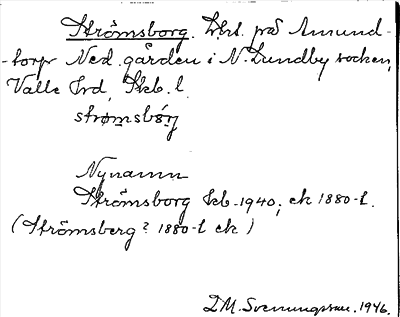 Strömsborg. Lht. på Amund-
-torp Ned. gården i N. Lundby socken,
Valle Hrd, Skb. l.
strömsbórj
Nynamn
Strömsborg kb-1940, ek 1880-t.
(Strömsberg? 1880-t ek)
D. M. Svenungsson. 1946.